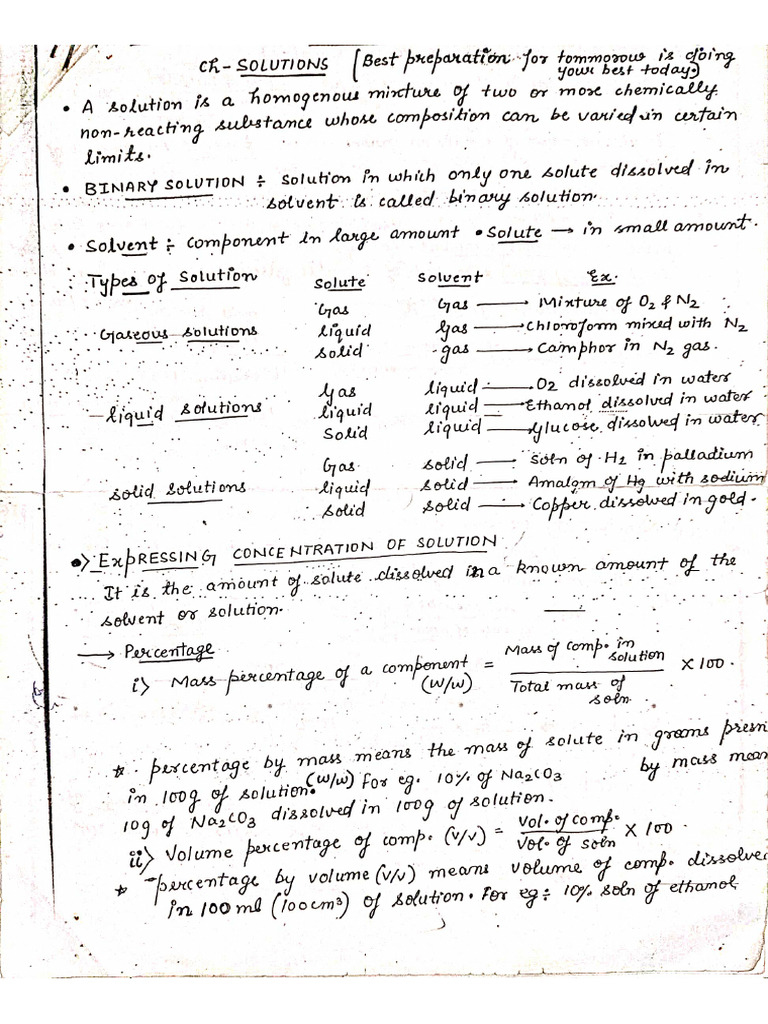 Ch- SOLUTIONS (Best preparation for tommorow is doing
your best today.)
• A solution is a homogenous mixture of two or more chemically
non-reacting substance whose composition can be varied in certain
limits.
• BINARY SOLUTION ÷ solution in which only one solute dissolved in
solvent is called binary solution.
• Solvent ÷ component in large amount • Solute → in small amount.
Types of Solution Solute Solvent Ex.
Gas Gas → Mixture of O2 & N2
Gaseous solutions liquid Gas → Chloroform mixed with N2
solid gas → Camphor in N2 gas.
Gas liquid → O2 dissolved in water
- liquid solutions liquid liquid → Ethanol dissolved in water
Solid liquid → Glucose dissolved in water
Gas solid → Soln of H2 in palladium
solid solutions liquid solid → Amalgm of Hg with sodium
solid solid → Copper dissolved in gold.
•> EXPRESSING CONCENTRATION OF SOLUTION
It is the amount of solute dissolved in a known amount of the
solvent or solution.
→ Percentage
i> Mass percentage of a component (w/w) = Mass of comp. in solution / Total mass of soln × 100.
* percentage by mass means the mass of solute in grams presn
in 100g of solution. (w/w) For eg. 10% of Na2CO3 by mass mean
10g of Na2CO3 dissolved in 100g of solution.
ii> Volume percentage of comp. (v/v) = Vol. of comp. / Vol. of soln × 100.
* percentage by volume (v/v) means volume of comp. dissolve
in 100 ml (100cm3) of solution. For eg ÷ 10% soln of ethanol